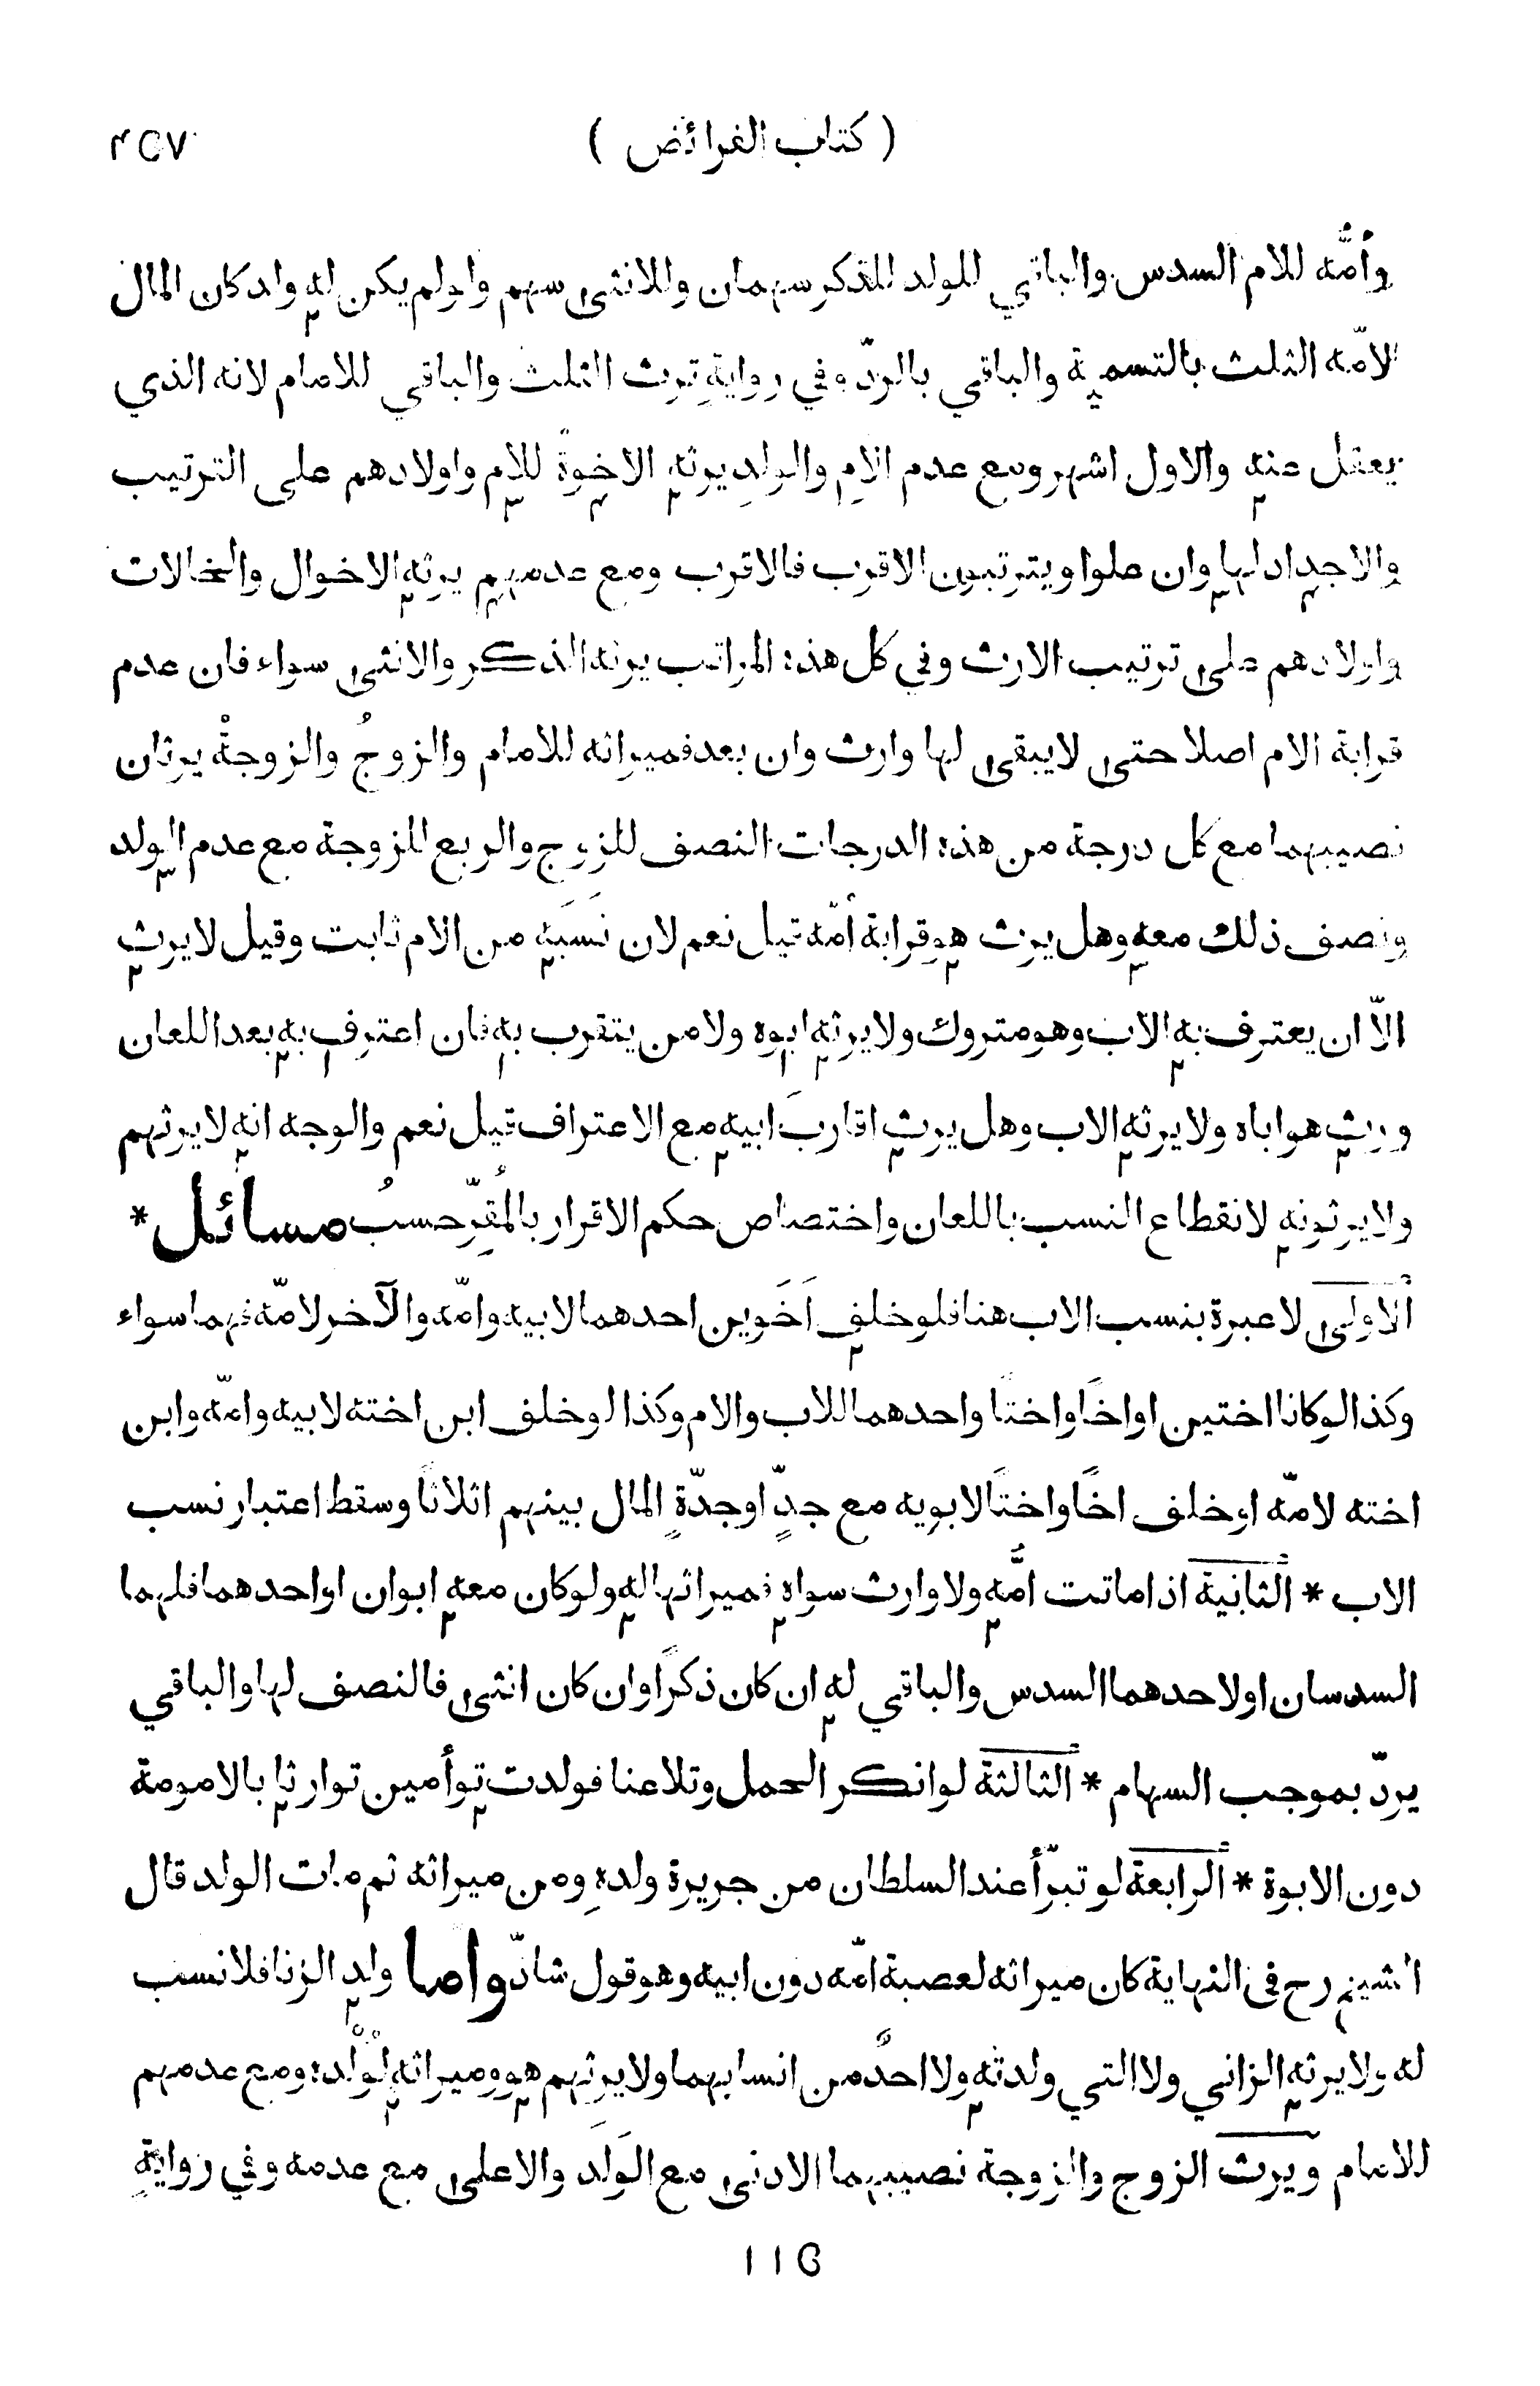 ( كتاب الفرائض ) ٣٥٧
وأمّه للام السدس والباقي للولد للذكر سهمان وللانثى سهم ولولم يكن له ولد كان المال
لامّه الثلث بالتسمية والباقي بالردّ وفي رواية ترث الثلث والباقي للامام لانه الذي
يعقل عنه والاول اشهر ومع عدم الام والولد يرثه الاخوة للام واولادهم على الترتيب
والاجداد لها وان علوا ويترتبون الاقرب فالاقرب ومع عدمهم يرثه الاخوال والخالات
واولادهم على ترتيب الارث وفي كل هذه المراتب يرثه الذكر والانثى سواء فان عدم
قرابة الام اصلا حتى لايبقى لها وارث وان بعد فميراثه للامام والزوجُ والزوجةُ يرثان
نصيبهما مع كل درجة من هذه الدرجات النصف للزوج والربع للزوجة مع عدم الولد
ونصف ذلك معه وهل يرث هو قرابة أمّه قيل نعم لان نَسَبَه من الام ثابت وقيل لايرث
الاّ ان يعترف به الاب وهو متروك ولايرثه ابوه ولامن يتقرب به فان اعترف به بعد اللعان
ورث هو اباه ولايرثه الاب وهل يرث اقاربَ ابيه مع الاعتراف قيل نعم والوجه انه لايرثهم
ولايرثونه لانقطاع النسب باللعان واختصاص حكم الاقرار بالمُقِرّ حسبُ مسائل *
الاولى لاعبرة بنسب الاب هنا فلو خلف اَخَوين احدهما لابيه وامّه والآخر لامّه فهما سواء
وكذا لوكانا اختين او اخًا واختًا واحدهما للاب والام وكذا لوخلف ابن اخته لابيه وامّه وابن
اخته لامّه او خلف اخًا واختًا لابويه مع جدٍّ اوجدّةٍ المال بينهم اثلاثًا وسقط اعتبار نسب
الاب * الثانية اذا ماتت امُّه ولاوارث سواه فميراثها له ولوكان معه ابوان او احدهما فلهما
السدسان اولاحدهما السدس والباقي له ان كان ذكرًا وان كان انثى فالنصف لها والباقي
يردّ بموجب السهام * الثالثة لوانكر الحمل وتلاعنا فولدت توأمين توارثا بالامومة
دون الابوة * الرابعة لو تبرّأ عند السلطان من جريرة ولدهِ ومن ميراثه ثم مات الولد قال
الشيخ رح فى النهاية كان ميراثه لعصبة امّه دون ابيه وهو قول شاذّ واما ولد الزنا فلانسب
له ولايرثه الزاني ولاالتي ولدته ولااحدٌ من انسابهما ولايرثهم هو وميراثه لِوُلْده ومع عدمهم
للامام ويرث الزوج والزوجة نصيبهما الادنى مع الوَلَد والاعلى مع عدمه وفي روايةٍ